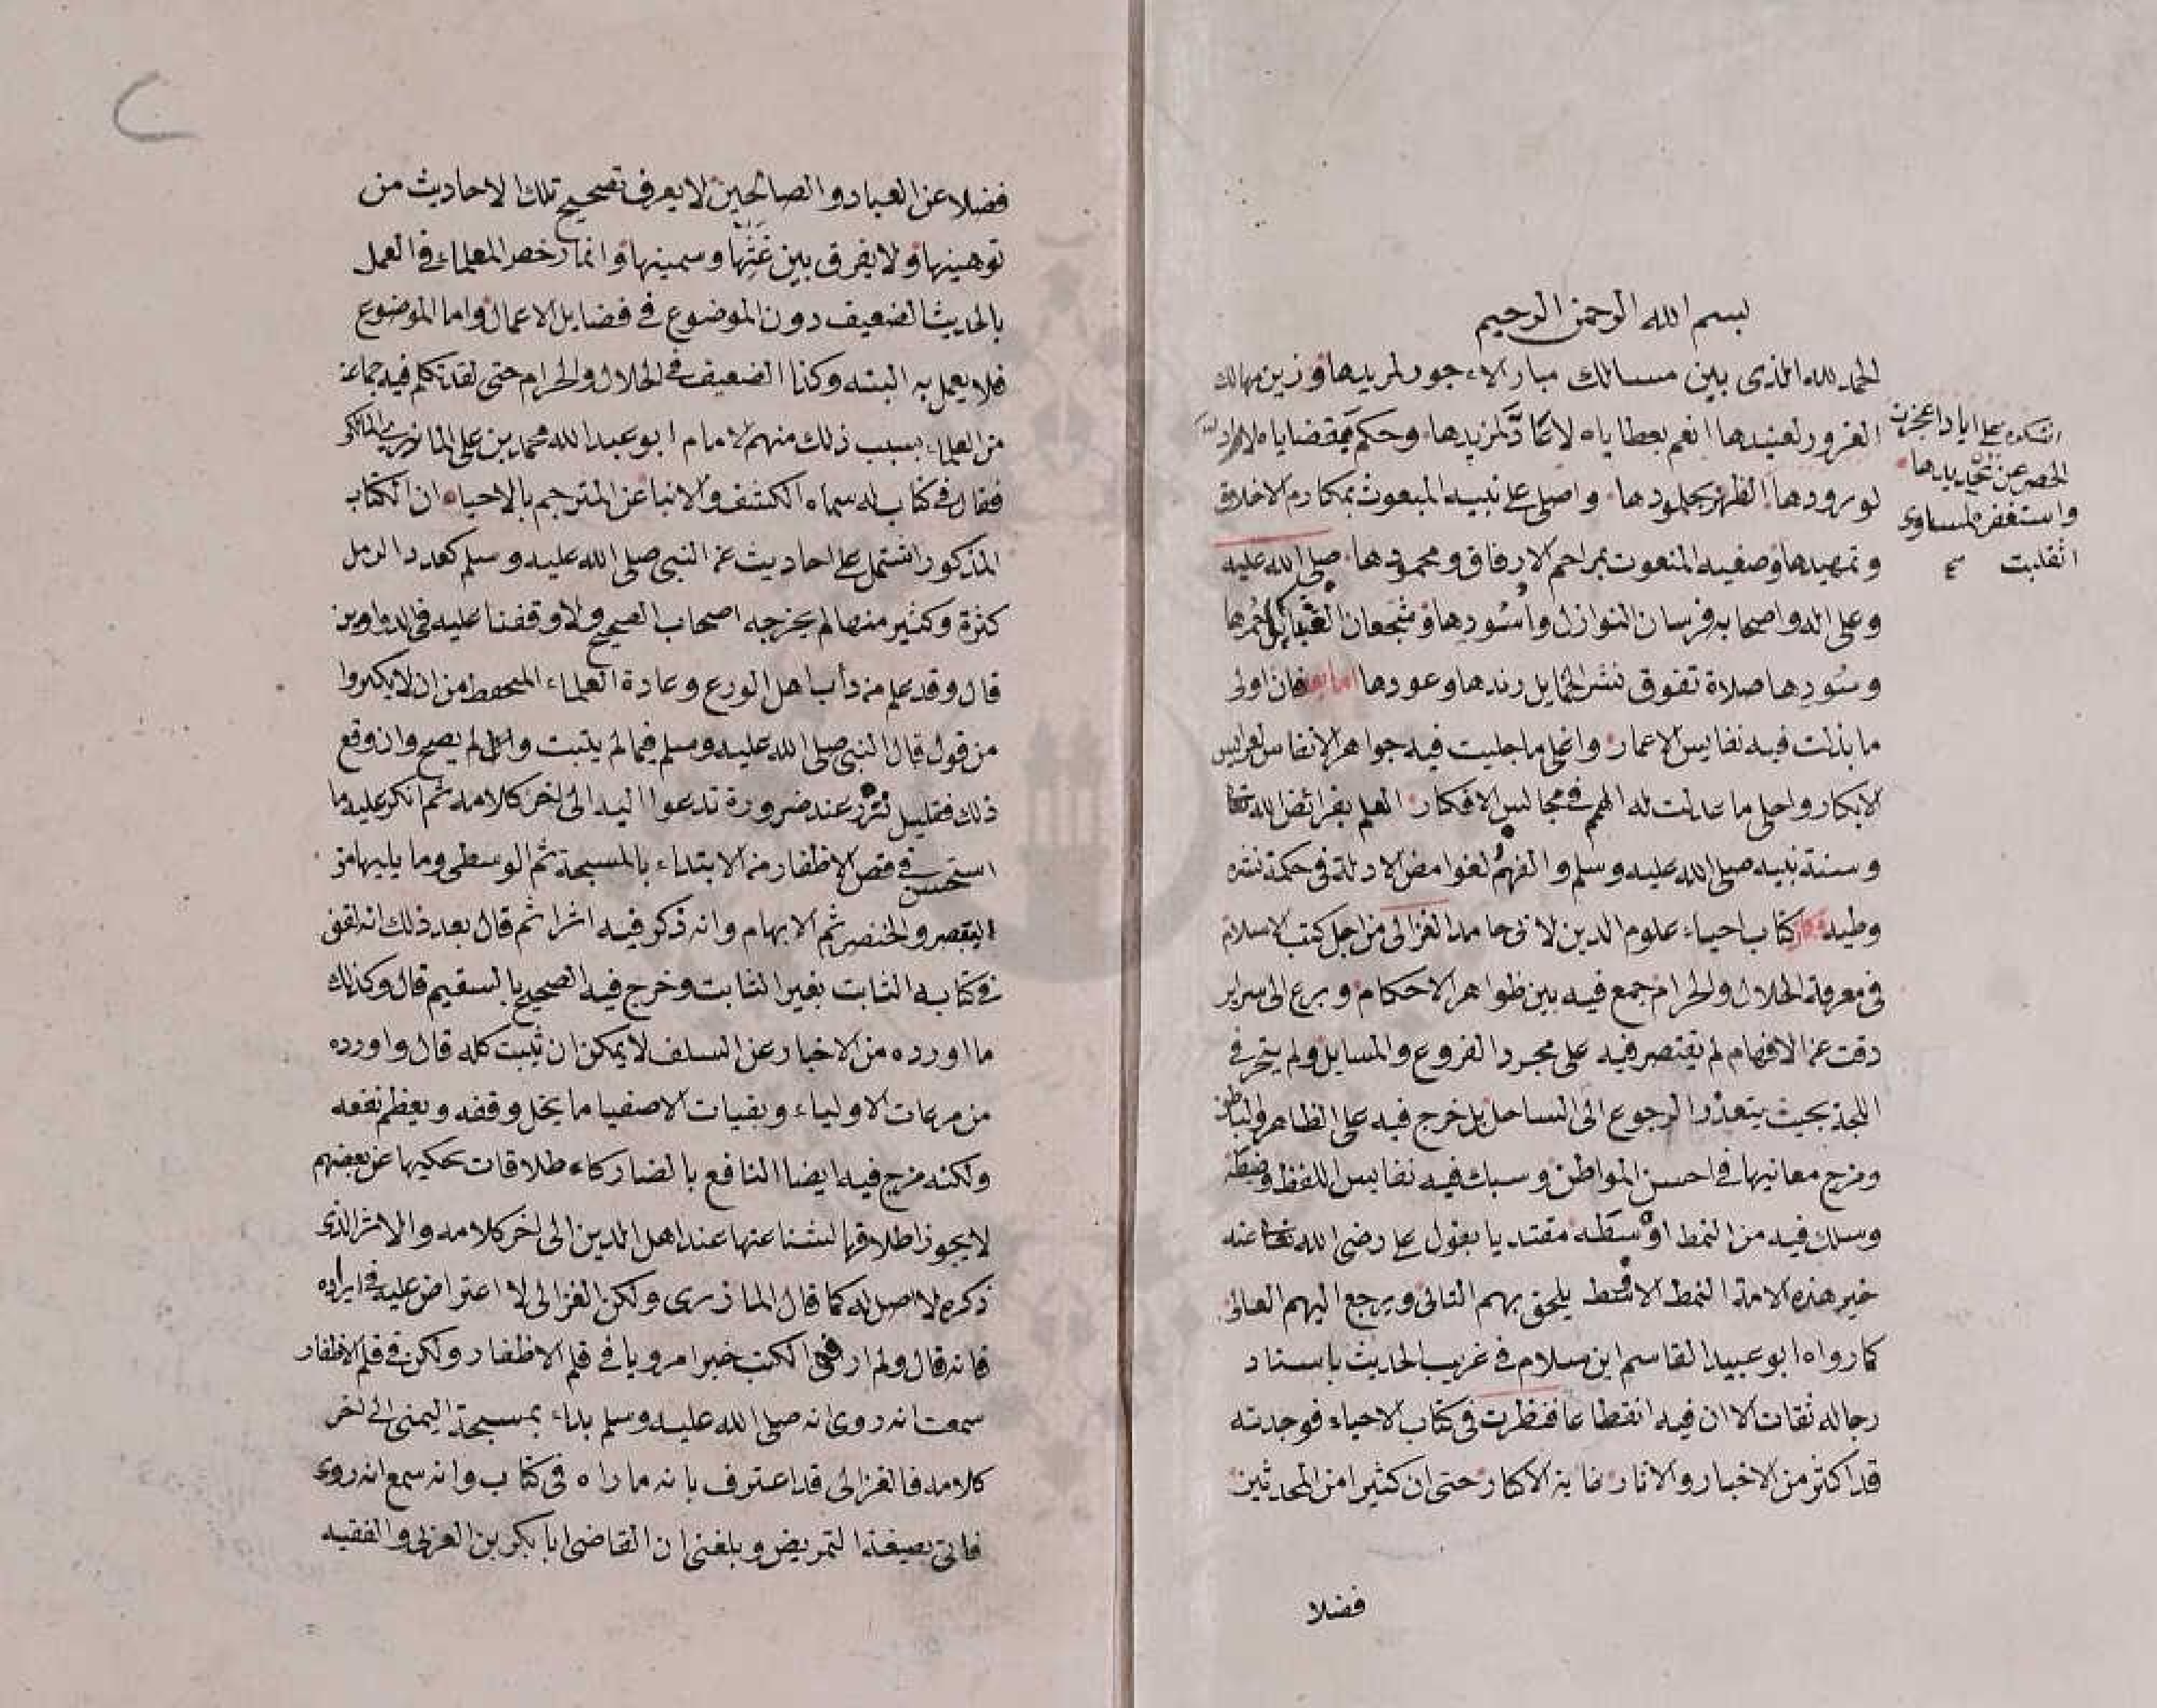 بسم الله الرحمن الرحيم
الحمد لله الذى بين مسالك مبار الاجود لمريدها وزين مهالك
الغرور لعنيدها انعم بعطاياه لا نحاد لمزيدها وحكم بقضاياه لا مراد
لورودها الظهر بجلمودها واصلى على نبيه المبعوث بمكارم الاخلاق
وتمهيدها وصفيه المنعوت بمراحم الارفاق ومحمودها صلى الله عليه
وعلى اله واصحابه فرسان النوازل واسودها وشجعان القبايل
وسودها صلاة تفوق نشر الخمايل رندها وعودها اما بعد فان اولى
ما بذلت فيه نفايس الاعمار واغلى ما جليت فيه جواهر الانفاس لعرايس
الابكار واحلى ما عدلت له الهمم فى مجالس الافكار العلم بفرائض الله تعالى
وسنة نبيه صلى الله عليه وسلم والفهم لغوامض الادلة فى حكمة نشره
وطيه فكان كتاب احياء علوم الدين لابى حامد الغزالى من اجل كتب الاسلام
فى معرفة الحلال والحرام جمع فيه بين ظواهر الاحكام وبرع الى سراير
دقت عن الافهام لم يقتصر فيه على مجرد الفروع والمسايل ولم يتبحر فى
اللجة بحيث يتعذر الرجوع الى الساحل بل خرج فيه على الظاهر والباطن
ومزج معانيها فى احسن المواطن وسبك فيه نفايس اللفظ وضبطه
وسلك فيه من النمط اوسطه مقتديا بقول على رضى الله تعالى عنه
خير هذه الامة النمط الاوسط يلحق بهم التالى ويرجع اليهم الغالى
كما رواه ابو عبيد القاسم ابن سلام فى غريب الحديث باسناد
رجاله ثقات الا ان فيه انقطاعا فنظرت فى كتاب الاحياء فوجدته
قد اكثر من الاخبار والاثار غاية الاكثار حتى ان كثيرا من المحدثين
فضلا
اشكره على اياد اعجزت
الحصر عن تحديدها
واستغفره لمساوى
اثقلت
فضلا عن العباد والصالحين لا يعرف تصحيح تلك الاحاديث من
توهينها ولا يفرق بين غثها وسمينها وانما رخص العلماء فى العمل
بالحديث الضعيف دون الموضوع فى فضايل الاعمال واما الموضوع
فلا يعمل به البته وكذا الضعيف فى الحلال والحرام حتى لقد تكلم فيه جماعة
من العلماء بسبب ذلك منهم الامام ابو عبد الله محمد بن على المازرى المالكى
فقال فى كتاب له سماه الكشف والانبا عن المترجم بالاحياء ان الكتاب
المذكور اشتمل على احاديث عن النبى صلى الله عليه وسلم كعدد الرمل
كثرة وكثير منها لم يخرجه اصحاب الصحيح ولا وقفنا عليه فى الدواوين
قال وقد علم من دأب اهل الورع وعادة العلماء المتحفظ من ان لا يكثروا
من قول قال النبى صلى الله عليه وسلم فيما لم يثبت وان لم يصح وان وقع
ذلك فقليل نزر عند ضرورة تدعوا اليه الى اخر كلامه ثم انكر عليه ما
استحسن فى قص الاظفار من الابتداء بالمسبحة ثم الوسطى وما يليها من
البنصر والخنصر ثم الابهام وانه ذكر فيه اثرا ثم قال بعد ذلك انه لفق
فى كتابه الثابت بغير الثابت وخرج فيه الصحيح بالسقيم قال وكذلك
ما اورده من الاخبار عن السلف لا يمكن ان ثبت كله قال واورده
من نزعات الاولياء وبقيات الاصفيا ما يجل وقفه ويعظم نفعه
ولكنه مزج فيه ايضا النافع بالضار كاء طلاقات يحكيها عن بعضهم
لا يجوز اطلاقها لشناعتها عند اهل الدين الى اخر كلامه والاثر الذى
ذكره لا اصل له كما قال المازرى ولكن الغزالى لا اعتراض عليه فى ايراده
فانه قال ولم ار فى الكتب خبرا مرويا فى قلم الاظفار ولكن فى قلم الاظفار
سمعت انه روى انه صلى الله عليه وسلم بداء بمسبحة اليمنى الى اخر
كلامه فالغزالى قد اعترف بانه ما راه فى كتاب وانه سمع انه روى
فاتى بصيغة التمريض وبلغنى ان القاضى ابا بكر بن العربى والفقيه